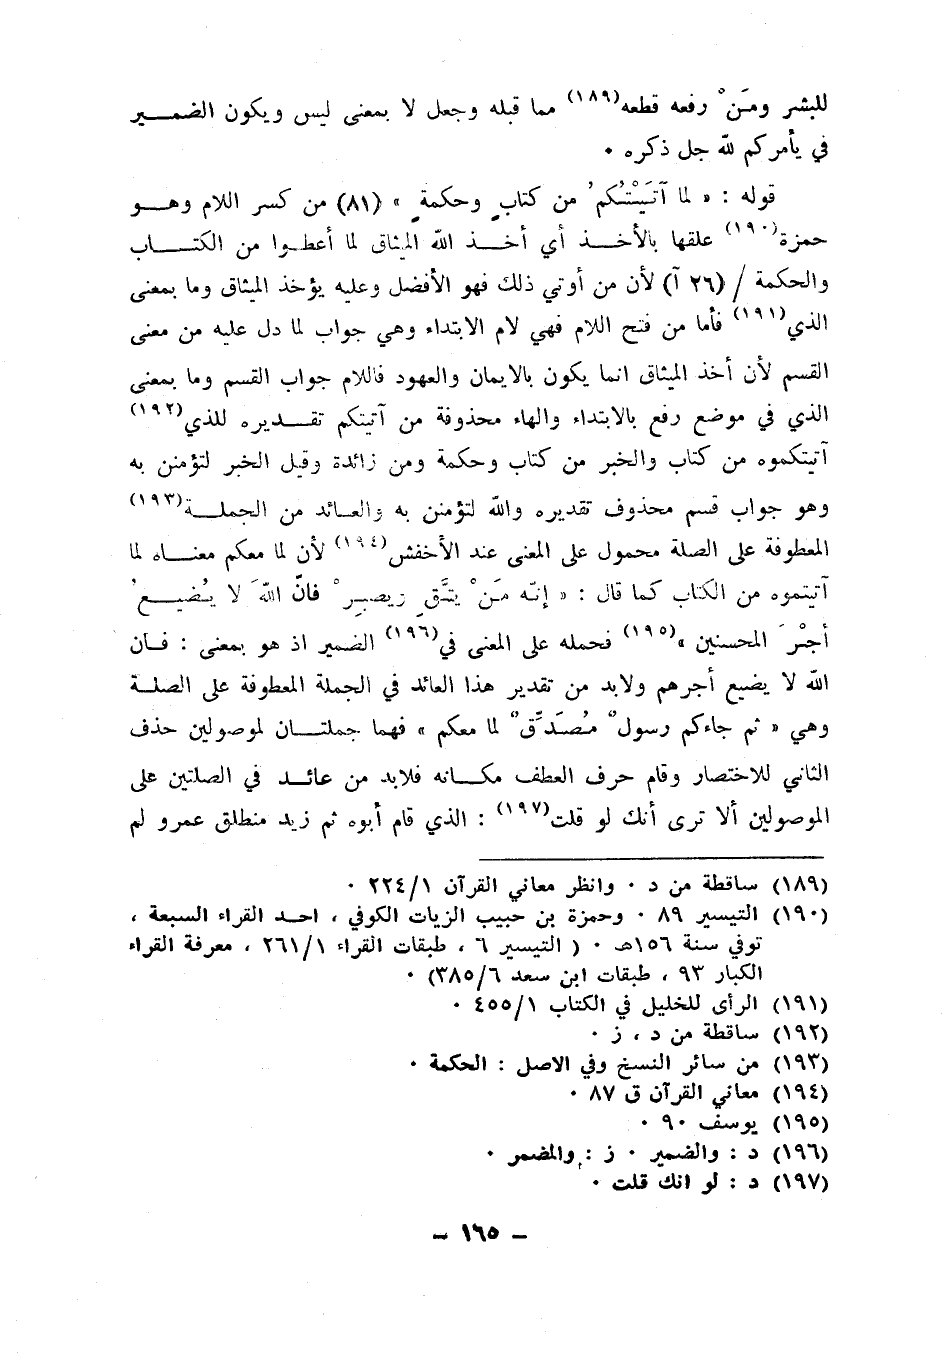 للبشر ومَنْ رفعه قطعه(١٨٩) مما قبله وجعل لا بمعنى ليس ويكون الضمـــير
في يأمركم لله جل ذكره ٠
قوله : « لما آتَيْتُكُم من كتابٍ وحكمةٍ » (٨١) من كسر اللام وهـــو
حمزة(١٩٠) علقها بالأخـــذ أي أخـــذ الله الميثاق لما أعطـوا من الكتـــاب
والحكمة / (٢٦ آ) لأن من أوتي ذلك فهو الأفضل وعليه يؤخذ الميثاق وما بمعنى
الذي(١٩١) فأما من فتح اللام فهي لام الابتداء وهي جواب لما دل عليه من معنى
القسم لأن أخذ الميثاق انما يكون بالايمان والعهود فاللام جواب القسم وما بمعنى
الذي في موضع رفع بالابتداء والهاء محذوفة من آتيتكم تقـــديره للذي(١٩٢)
آتيتكموه من كتاب والخبر من كتاب وحكمة ومن زائدة وقيل الخبر لتؤمنن به
وهو جواب قسم محذوف تقديره والله لتؤمنن به والعـائد من الجملـــة(١٩٣)
المعطوفة على الصلة محمول على المعنى عند الأخفش(١٩٤) لأن لما معكم معنـــاه لما
آتيتموه من الكتاب كما قال : « إنّه مَنْ يتَّقِ ويصبِرْ فانَّ اللهَ لا يُضيـــعُ
أجْرَ المحسنين »(١٩٥) فحمله على المعنى في(١٩٦) الضمير اذ هو بمعنى : فـان
الله لا يضيع أجرهم ولابد من تقدير هذا العائد في الجملة المعطوفة على الصلـة
وهي « ثم جاءكم رسولٌ مُصَدِّقٌ لما معكم » فهما جملتـــان لموصولين حذف
الثاني للاختصار وقام حرف العطف مكـانه فلابد من عائـد في الصلتين على
الموصولين ألا ترى أنك لو قلت(١٩٧) : الذي قام أبوه ثم زيد منطلق عمرو لم
(١٨٩) ساقطة من د ٠ وانظر معاني القرآن ٢٢٤/١ ٠
(١٩٠) التيسير ٨٩ ٠ وحمزة بن حبيب الزيات الكوفي ، احـد القراء السبعة ،
توفي سنة ١٥٦هـ ٠ ( التيسير ٦ ، طبقات القراء ٢٦١/١ ، معرفة القراء
الكبار ٩٣ ، طبقات ابن سعد ٣٨٥/٦) ٠
(١٩١) الرأى للخليل في الكتاب ٤٥٥/١ ٠
(١٩٢) ساقطة من د ، ز ٠
(١٩٣) من سائر النسخ وفي الاصل : الحكمة ٠
(١٩٤) معاني القرآن ق ٨٧ ٠
(١٩٥) يوسف ٩٠ ٠
(١٩٦) د : والضمير ٠ ز : والمضمر ٠
(١٩٧) د : لو انك قلت ٠
– ١٦٥ –